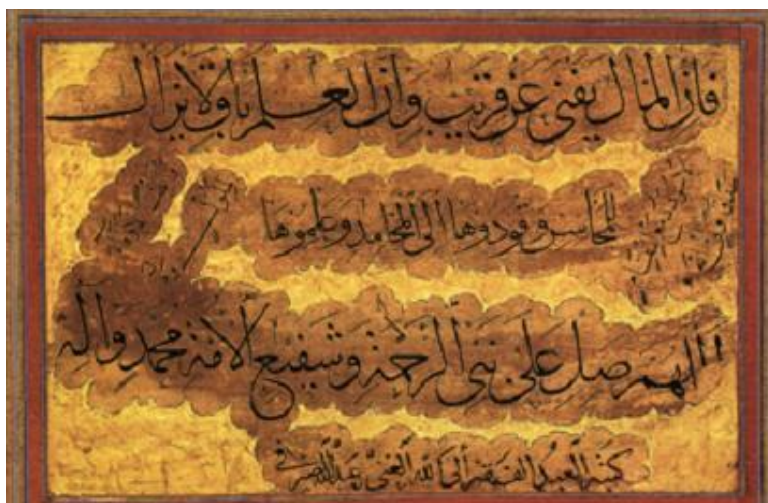 فان المال يفنى عن قريب وان العلم باق لا يزال
للمحاسن وقودوها الى المحامد وعلموها
اللهم صل على نبي الرحمة وشفيع الامة محمد واله
كتبه العبد الفقير الى الله الغني عبد الله